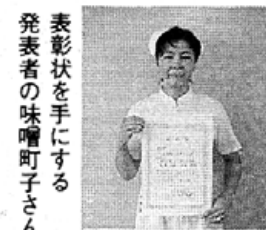 表彰状を手にする
発表者の味噌町子さん